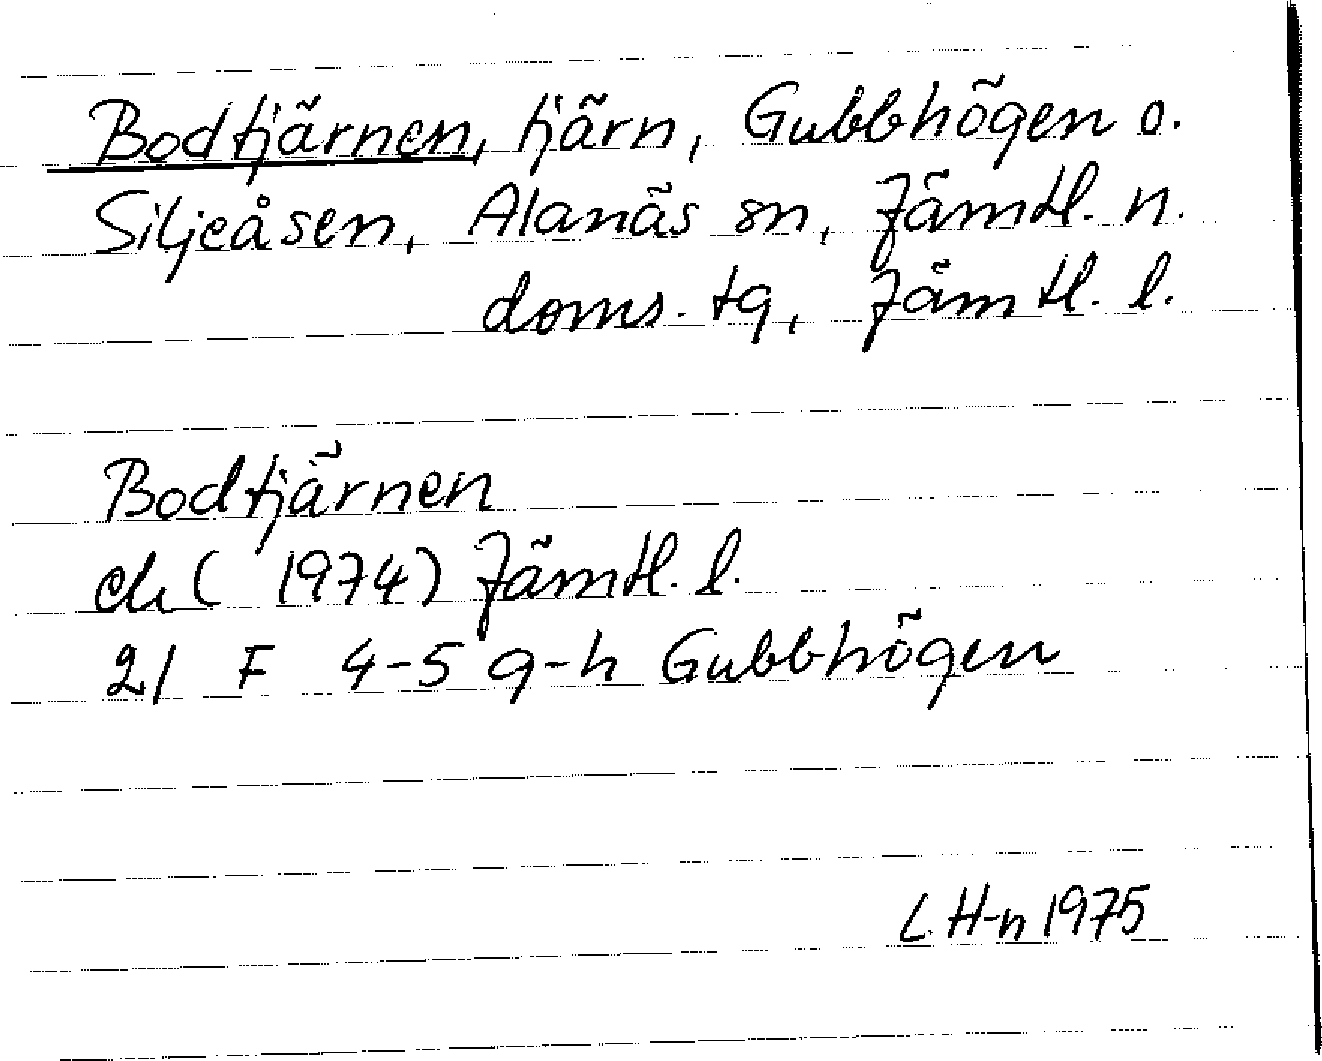 Bodtjärnen, tjärn, Gubbhögen o.
Siljeåsen, Alanäs sn, Jämtl. n.
doms. tg, Jämtl. l.
Bodtjärnen
ek ( 1974) Jämtl. l.
21 F 4-5 g-h Gubbhögen
L H-n 1975